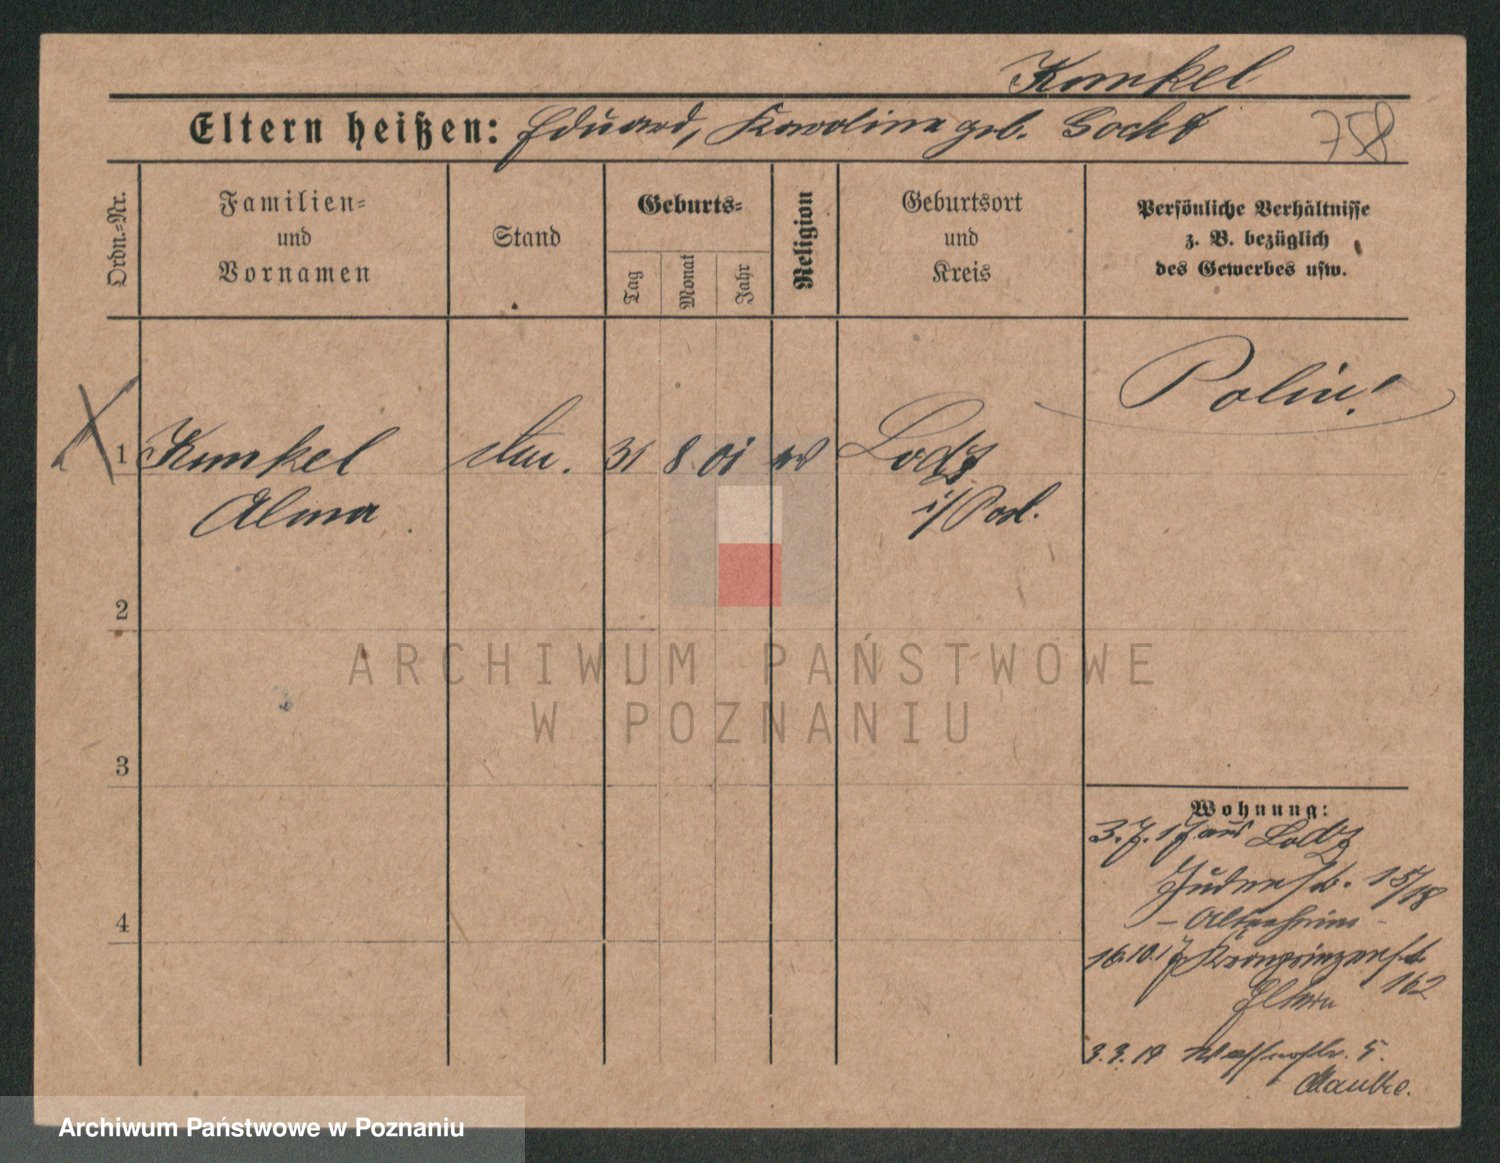 Kunkel
Eltern heißen: Eduard, Karoline geb. Gocht
758
Ordn.-Nr.
Familien-
und
Vornamen
Stand
Geburts-
Tag
Monat
Jahr
Religion
Geburtsort
und
Kreis
Persönliche Verhältnisse
z. B. bezüglich
des Gewerbes usw.
Polin!
1 Kunkel 31 8 01 Lodz
Alma i/Pol.
2
3
4
Wohnung:
3.7.17 aus Lodz
Judenstr. 15/18
- Altersheim -
16.10.17 Kronprinzenstr.
162
Eltern
3.3.19 5.
ARCHIWUM PAŃSTWOWE
W POZNANIU
Archiwum Państwowe w Poznaniu